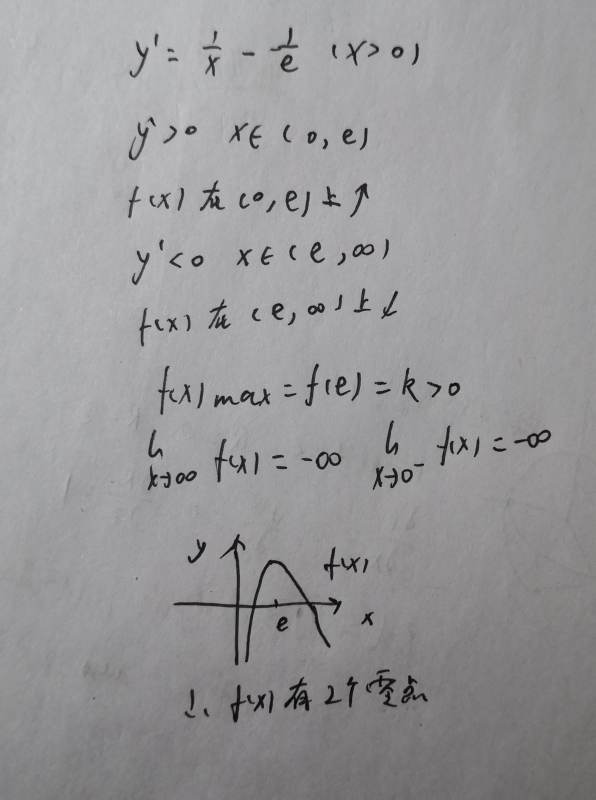 y' = 1/x - 1/e (x>0)
y'>0 x∈(0,e)
f(x)在(0,e)上↗
y'<0 x∈(e,∞)
f(x)在(e,∞)上↙
f(x)max=f(e)=k>0
lim x→∞ f(x)=-∞ lim x→0⁻ f(x)=-∞
y f(x)
e x
∴ f(x)有2个零点